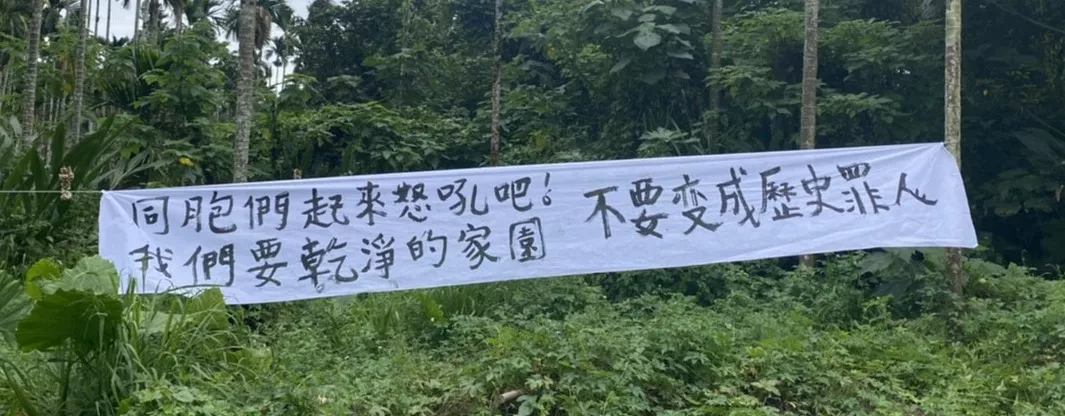 同胞們起來怒吼吧!
我們要乾淨的家園
不要变成歷史罪人